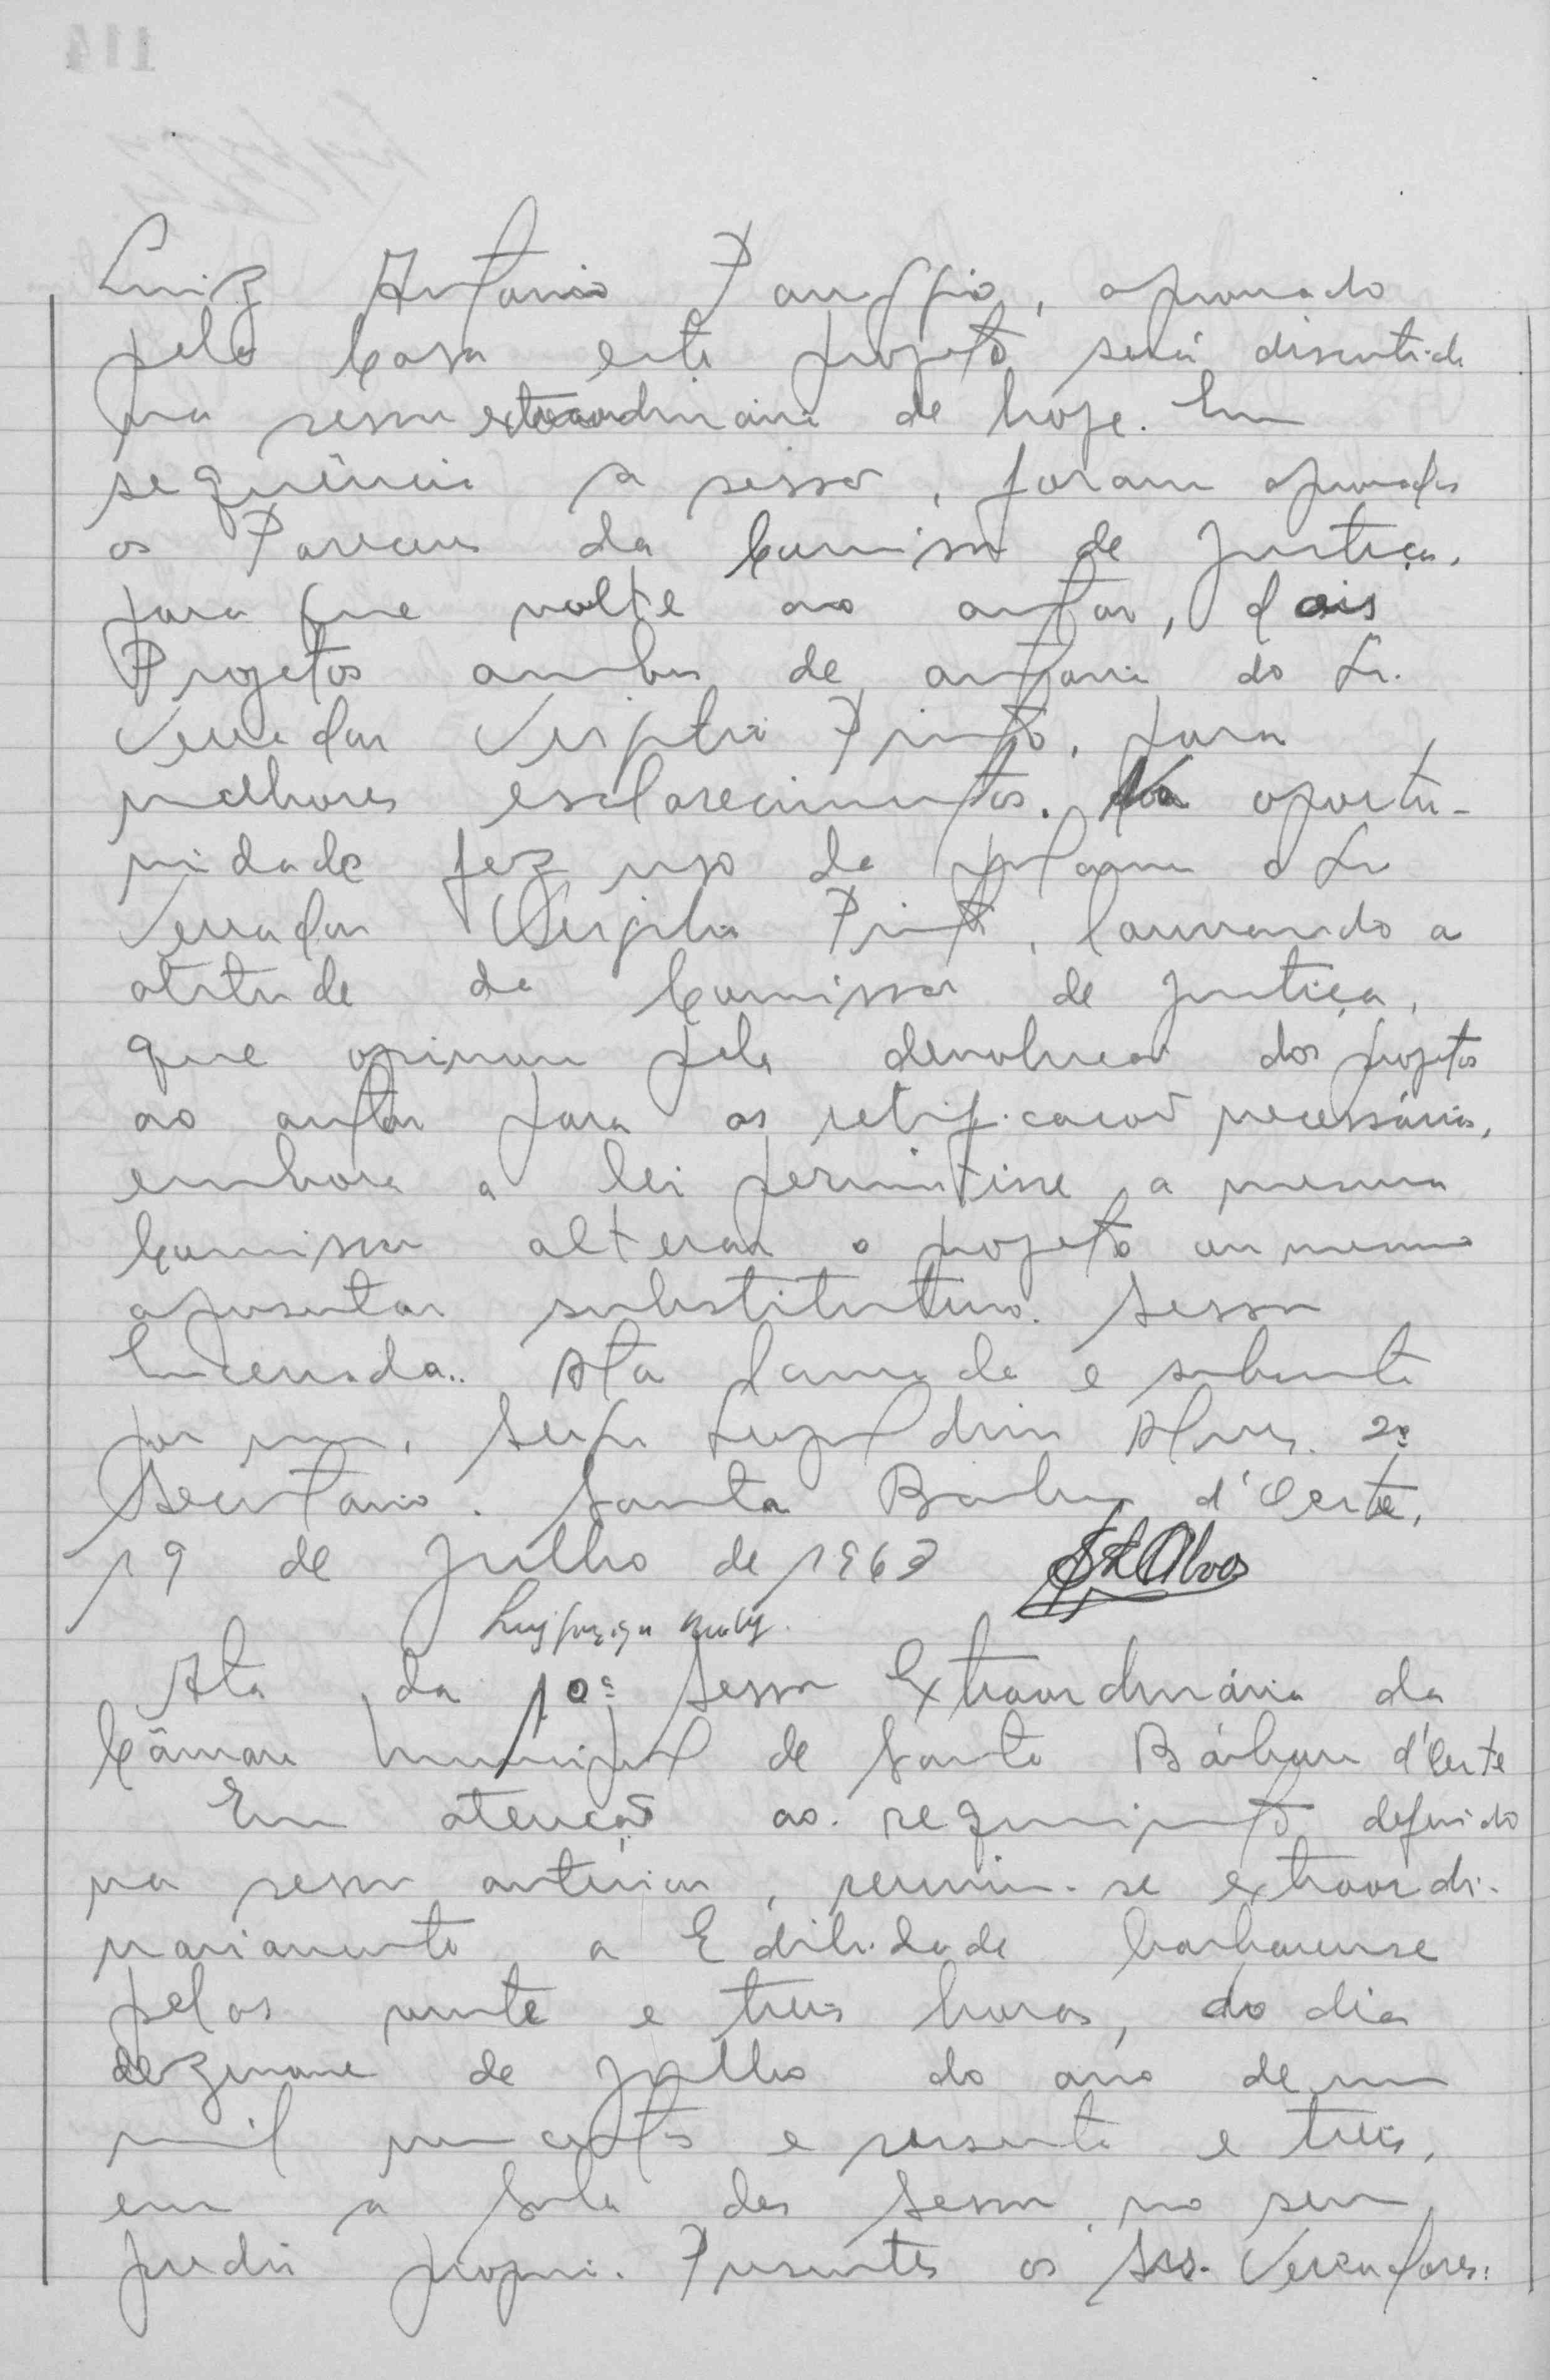 Luiz Antonio Panaggio, aprovado
pela Casa este projeto será discutido
na sessão extraordinaria de hoje. Em
sequência a sessão, foram aprovados
os Pareceres da Comissão de Justiça,
para que volte ao autor, dois
Projetos ambos de autoria do Sr.
Vereador Virgilio Pinto, para
melhores esclarecimentos. Na oportu-
nidade fez uso da palavra o Sr
Vereador Virgilio Pinto, louvando a
atitude da Comissão de Justiça,
que opinou pela devolucao dos projetos
ao autor para as retificacoes necessárias,
embora a lei permitisse a mesma
Comissão alterar o projeto ou mesmo
apresentar substitutivo. Sessão
Encerrada.. Ata lavrada e subscrita
por mim, Alves. 2º
Secretario. Santa Barbara d'Oeste,
19 de Julho de 1963 Alves
Ata da 10ª Sessão Extraordinária da
Câmara Municipal de Santa Bárbara d'Oeste
Em atenção ao requerimento deferido
na sessão anterior, reuniu-se extraordi-
nariamente a Edilidade barbarense
pelas vinte e três horas, do dia
dezenove de Julho do ano de um
mil novecentos e sessenta e três,
em a Sala das Sessões no seu
predio proprio. Presentes os Srs. Vereadores: